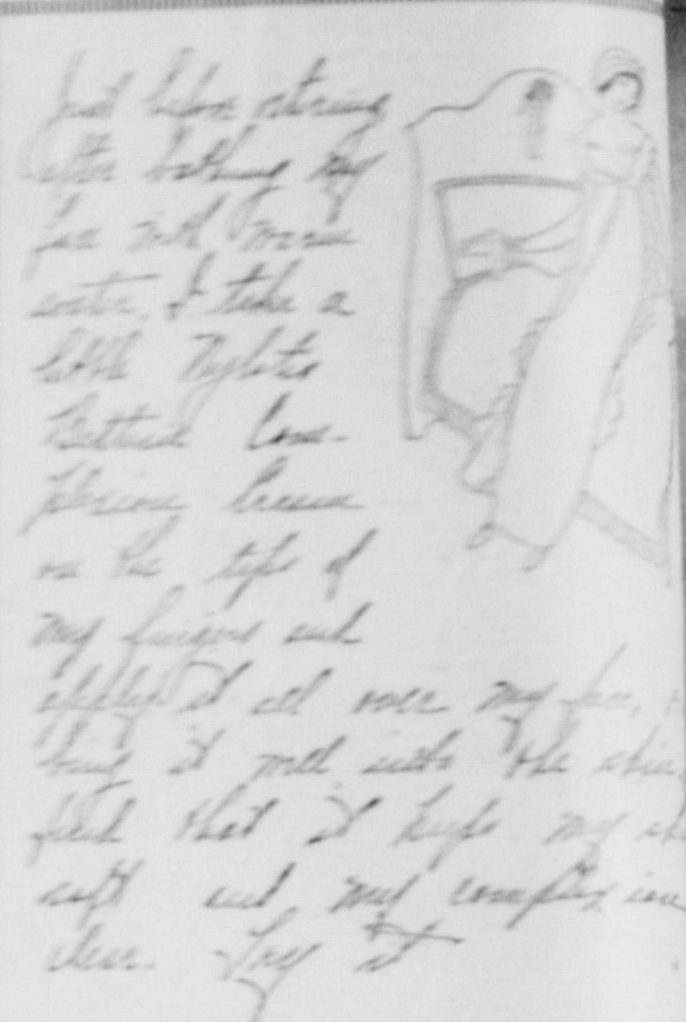 Just before retiring
after bathing my
face with warm
water, I take a
little
Com-
plexion Cream
on the tips of
my fingers and
apply it all over my face,
bing it well into the skin.
find that it keeps my
soft and my complexion
clear. Try it